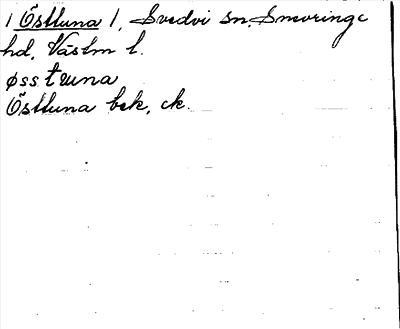 1 Östtuna 1, Svedvi sn, Snevringe
hd, Västm l.
øsstuna
Östtuna bek, ck.